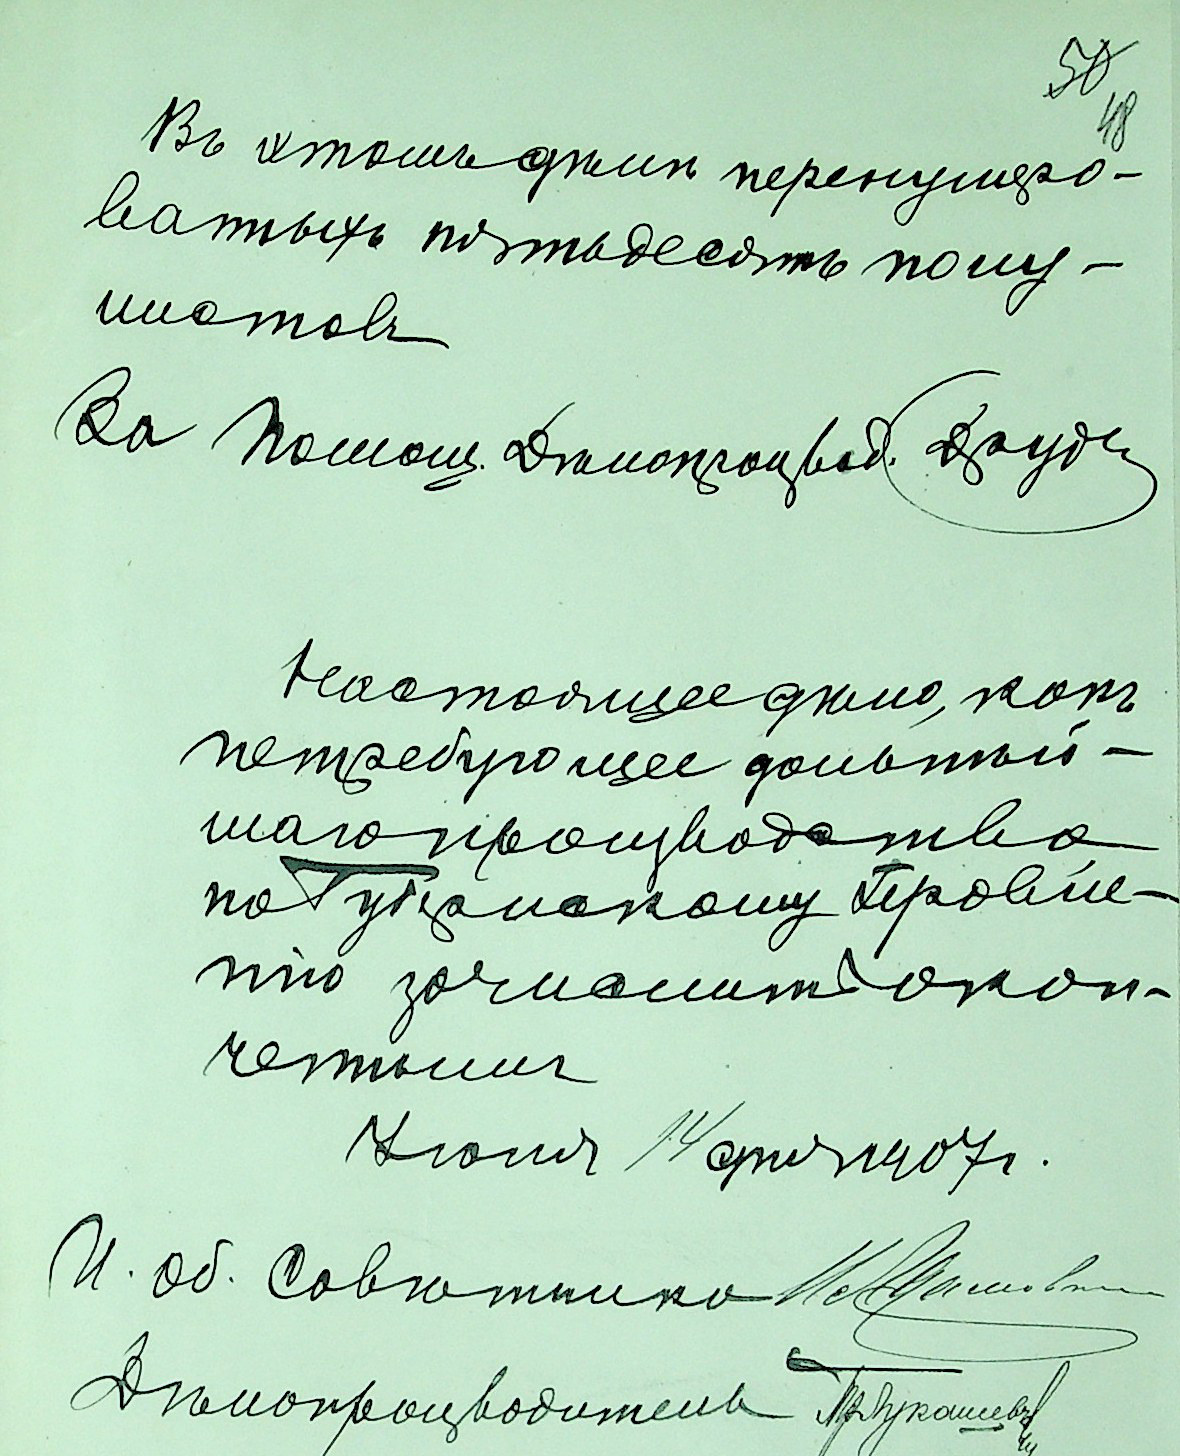 50
48
Въ этомъ дѣлѣ перенумеро-
ванныхъ пятьдесятъ полу-
листовъ
За Помощ. Дѣлопроизвод.
Настоящее дѣло, какъ
нетребующее дальнѣй-
шаго производства
по Губернскому Правле-
нію зачислить окон-
ченнымъ
Іюня 14 дня 1907 г.
И. об. Совѣтника
Дѣлопроизводитель